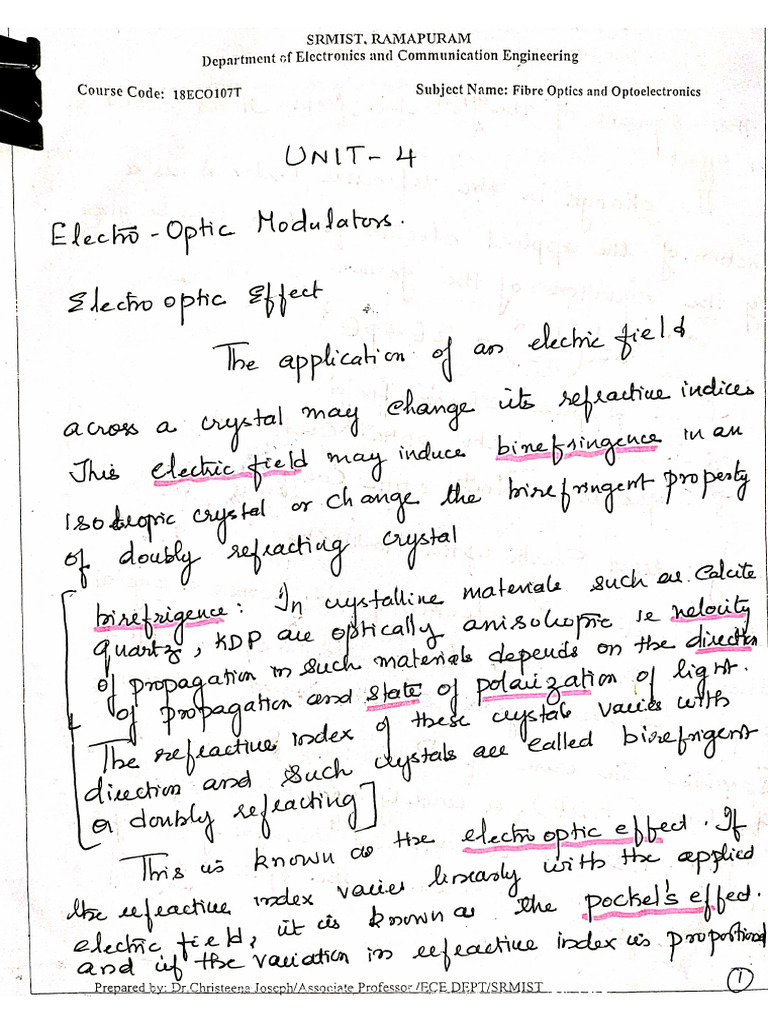 SRMIST, RAMAPURAM
Department of Electronics and Communication Engineering
Course Code: 18ECO107T Subject Name: Fibre Optics and Optoelectronics
UNIT-4
Electro-Optic Modulators.
Electro optic Effect
The application of an electric field
across a crystal may change its refractive indices
This electric field may induce binefringence in an
isotropic crystal or change the birefringent property
of doubly refracting crystal
[birefrigence: In crystalline materials such as Calcite
quartz, KDP are optically anisotropic ie velocity
of propagation in such materials depends on the direction
of propagation and state of polarization of light.
The refractive index of these crystals varies with
direction and such crystals are called birefrigent
or doubly refracting]
This is known as the electro optic effect. If
the refractive index varies linearly with the applied
electric field, it is known as the pockel's effect.
and if the variation in refractive index is proportional
Prepared by: Dr.Christeena Joseph/Associate Professor /ECE DEPT/SRMIST
1